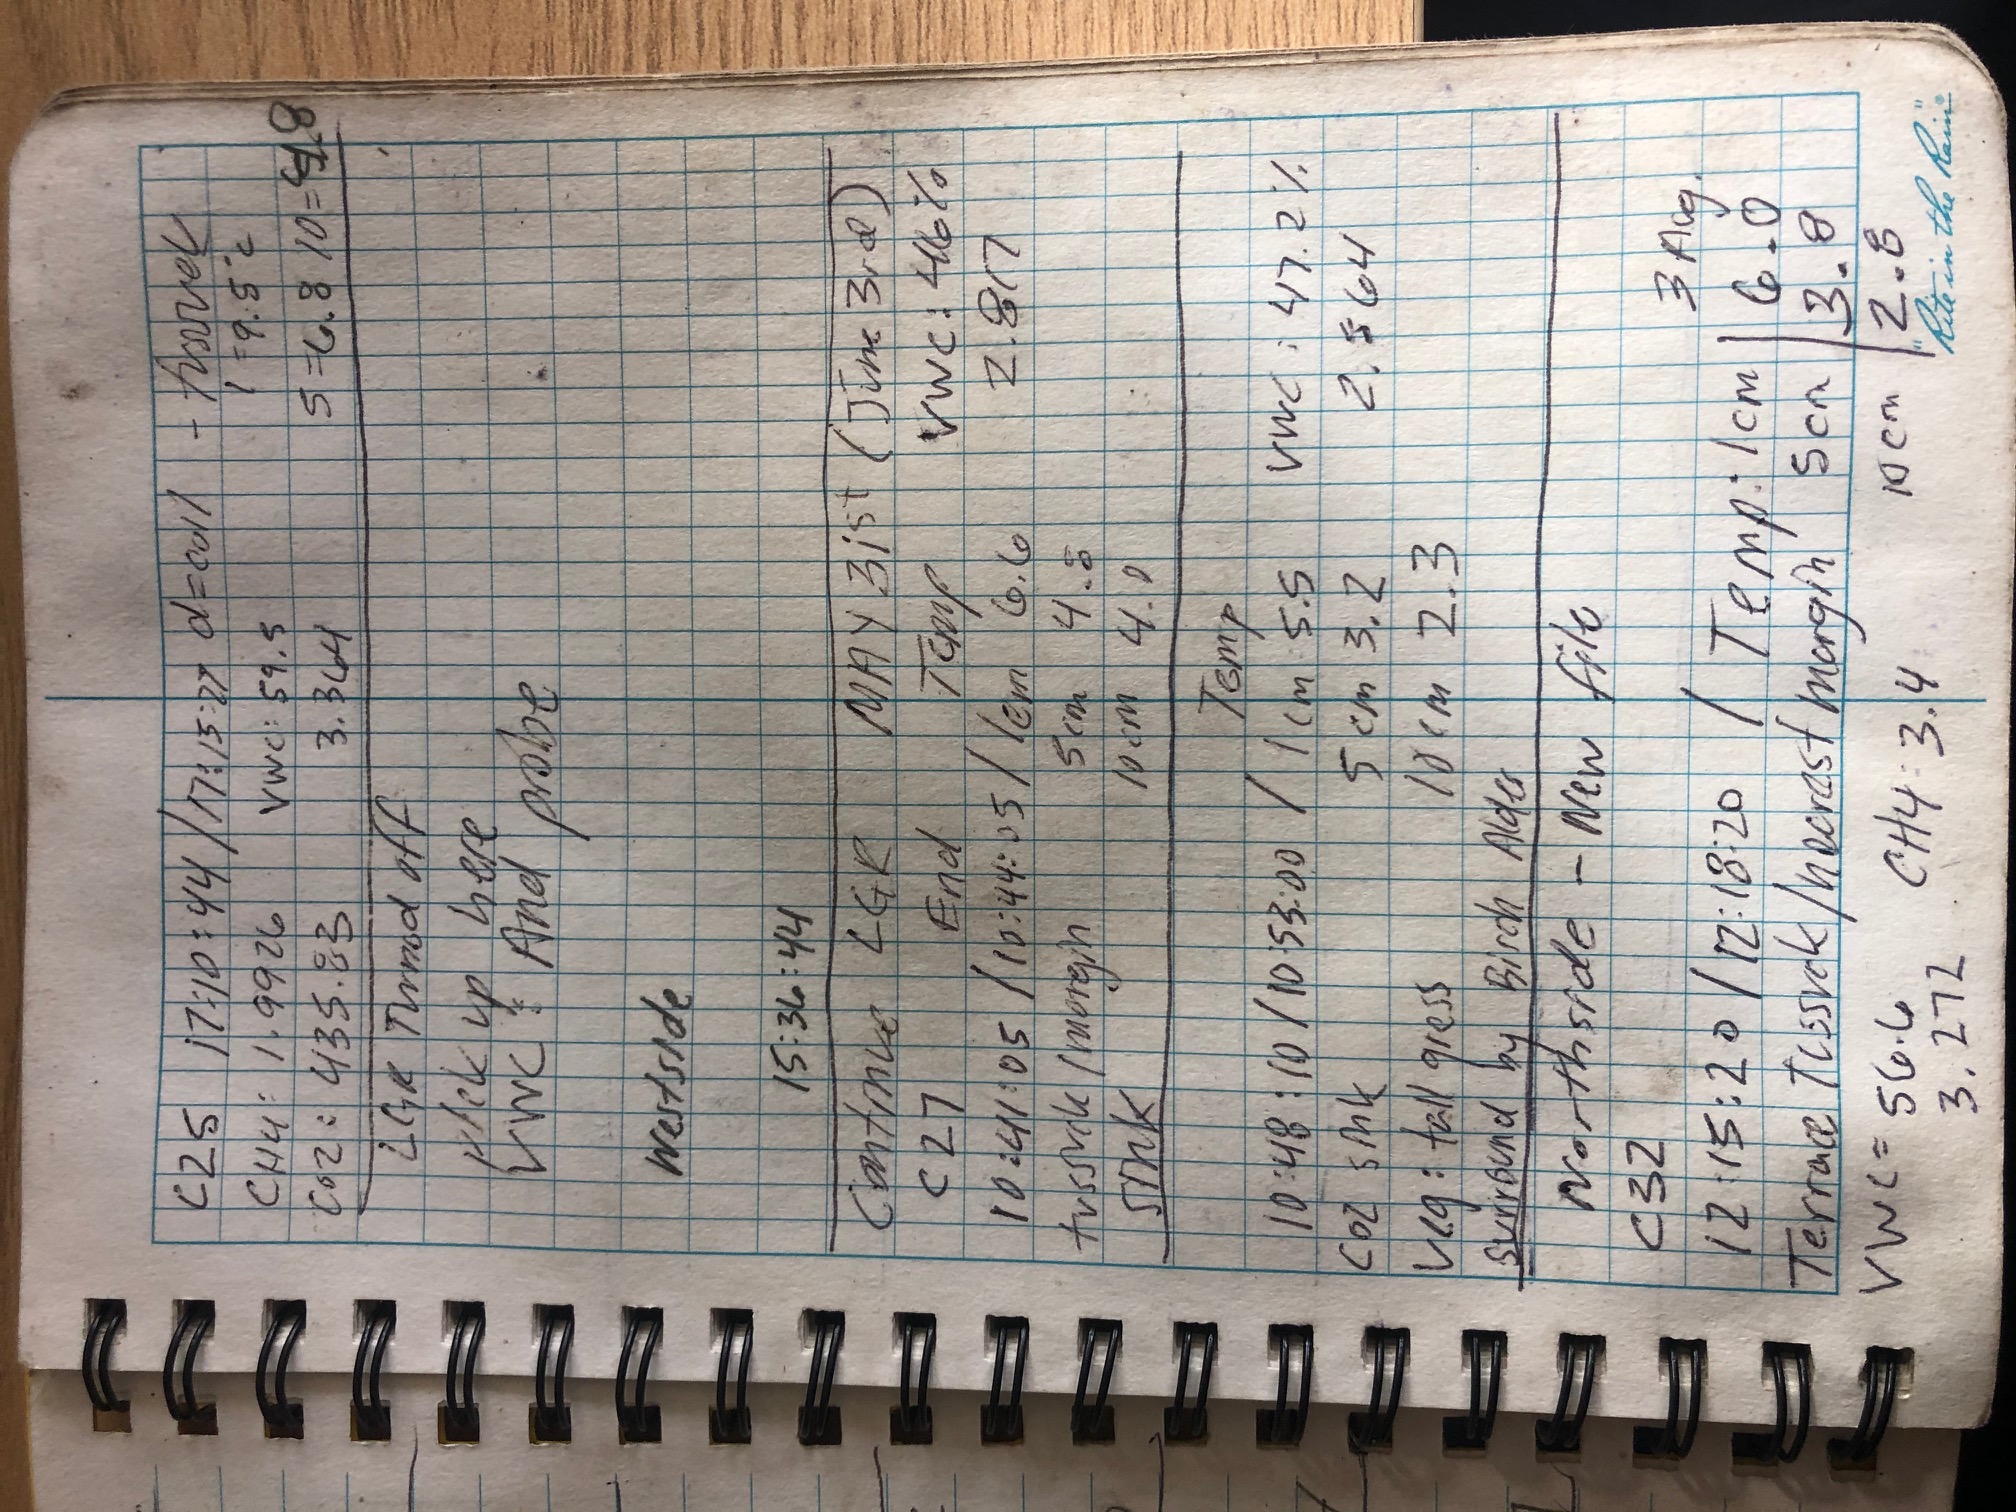 C25 17:10:44 / 17:15:27 d=coll - tussuck
1=9.5°C
CH4: 1.9926 VWC: 59.5
CO2: 435.83 3.364 5=6.8 10=
LGR Turned off
pick up here
VWC: And probe
Westside
15:36:44
Continue LGR MAY 31st (June 3rd)
C27 End Temp VWC: 46%
10:41:05 / 10:44:05 / 1cm 6.6 2.817
tussuck/margin 5cm 4.8
sink 10cm 4.0
Temp
10:48:10 / 10:53:00 / 1cm 5.5 VWC: 47.2%
CO2 sink 5cm 3.2 2.864
veg: tall grass 10cm 2.3
surround by Birch Alder
Northside - New file
C32
3 Avg.
12:15:20 / 12:18:20 / Temp: 1cm 6.0
Terrace tussuck/nearest margin 5cm 3.8
VWC= 56.6 CH4: 3.4 10cm 2.8
3.272
"Rite in the Rain"